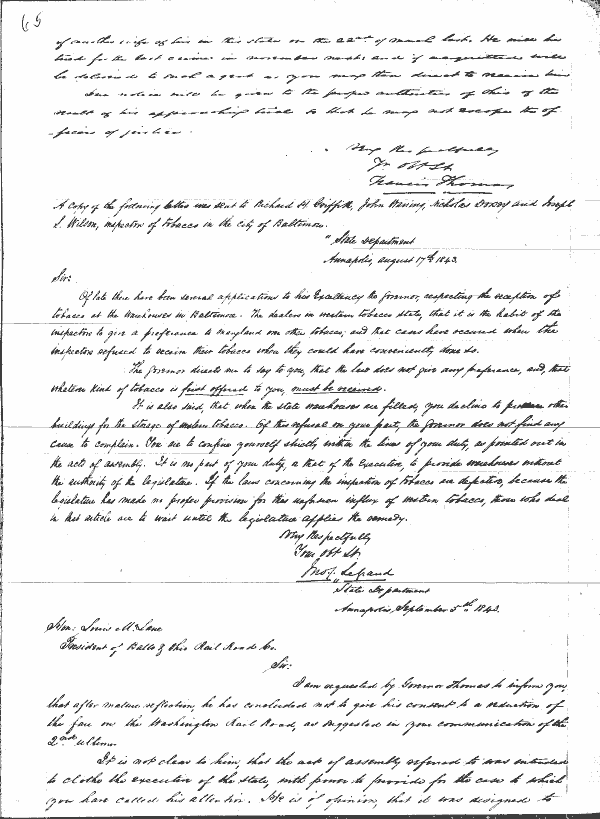 65
of another wife of his in this state on the 22nd of march last. He will be
tried for the last crime in november next: and if acquitted will
be delivered to such agent as you may then direct to receive him
Due notice will be given to the proper authorities of Ohio of the
result of his approaching trial so that he may not escape the of
ficers of justice.
Very Respectfully
Yr Obt St.
Francis Thomas
A Copy of the following letter was sent to Richard H Griffith, John Waring, Nicholas Dorsey and Joseph
S. Wilson, inspectors of tobacco in the city of Baltimore.
" State Department
Annapolis, august 17th 1843.
Sir:
Of late there have been several applications to his Excellency the Governor, respecting the reception of
tobacco at the Warehouses in Baltimore. The dealers in western tobacco state, that it is the habit of the
inspectors to give a preference to maryland over other tobacco; and that cases have occured when the
inspectors refused to receive their tobacco when they could have conveniently done so.
The Governor directs me to say to you, that the law does not give any preference, and, that
whatever kind of tobacco is first offered to you, must be received.
It is also said, that when the state warehouses are filled, you decline to procure other
buildings for the storage of western tobacco. Of this refusal on your part, the Governor does not find any
cause to complain. You are to confine yourself strictly within the lines of your duty, as pointed out in
the acts of assembly. It is no part of your duty, or that of the Executive, to provide warehouses without
the authority of the legislature. If the laws concerning the inspection of tobacco are defective, because the
legislature has made no proper provision for this unforseen influx of western tobacco, those who deal
in that article are to wait until the legislature applies the remedy.
Very Respectfully
Your Obt St.
Jno: C: LeGrand
State Department
Annapolis, September 5th 1843.
Hon: Louis McLane
President of Balto & Ohio Rail Road Co.
Sir:
I am requested by Governor Thomas to inform you,
that after mature reflection, he has concluded not to give his consent to a reduction of
the fare on the Washington Rail Road, as suggested in your communication of the
2nd ultimo
It is not clear to him, that the act of assembly referred to was intended
to clothe the executive of the state, with power to provide for the case to which
you have called his attention. He is of opinion, that it was designed to